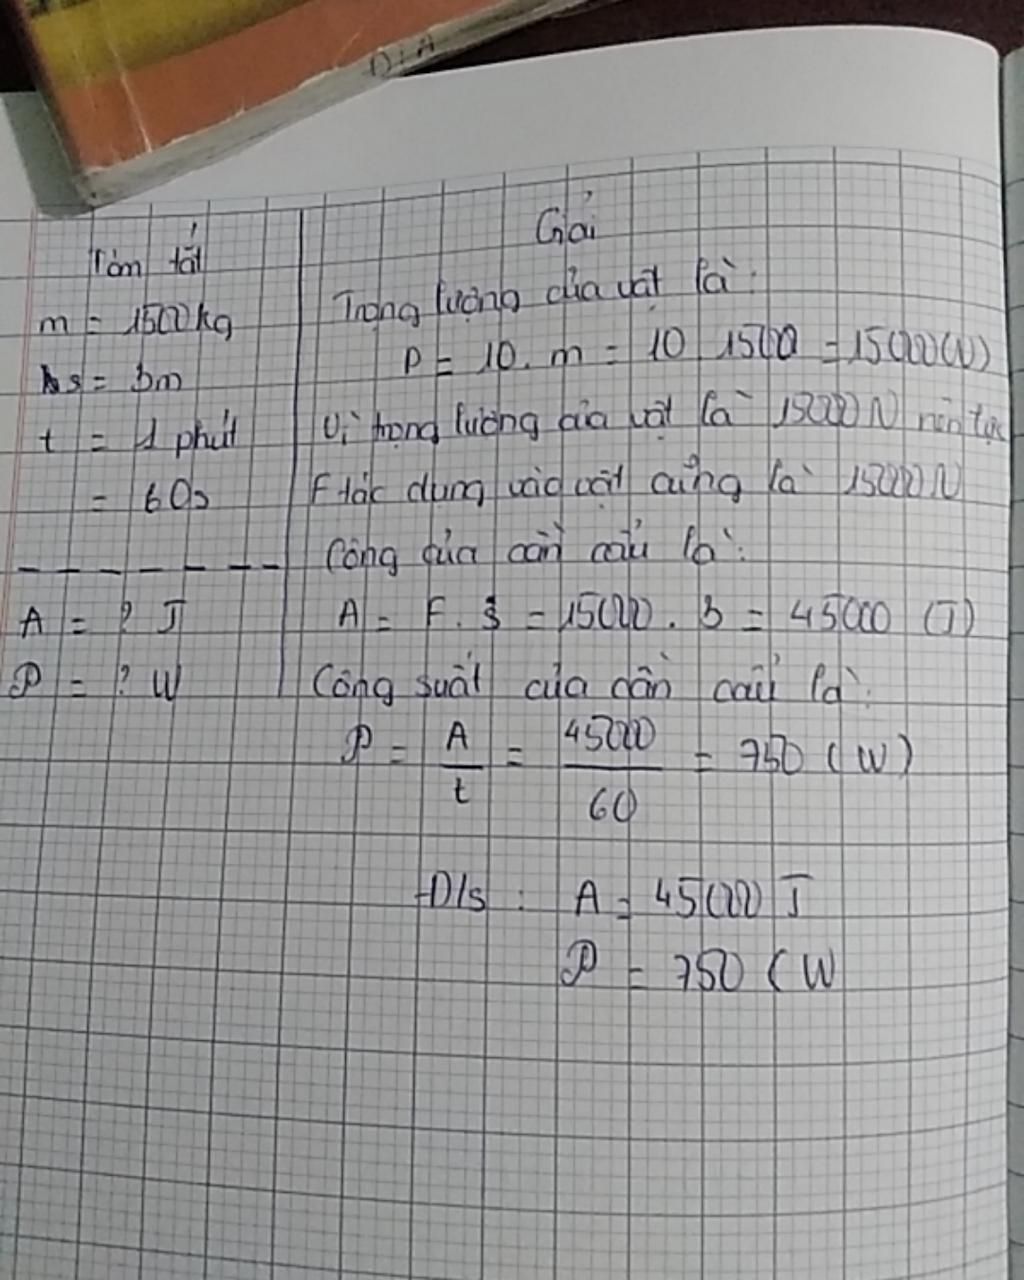 ĐỊA
Tóm tắt
m = 1500kg
s = 3m
t = 1 phút
= 60s
A = ? J
P = ? W
Giải
Trọng lượng của vật là:
P = 10. m = 10 1500 = 15000(N)
Vì trọng lượng của vật là 15000 N nên lực
F tác dụng vào vật cũng là 15000 N
Công của cần cẩu là:
A = F. s = 15000. 3 = 45000 (J)
Công suất của cần cẩu là:
P = A/t = 45000/60 = 750 (W)
Đ/s : A = 45000 J
P = 750 (W